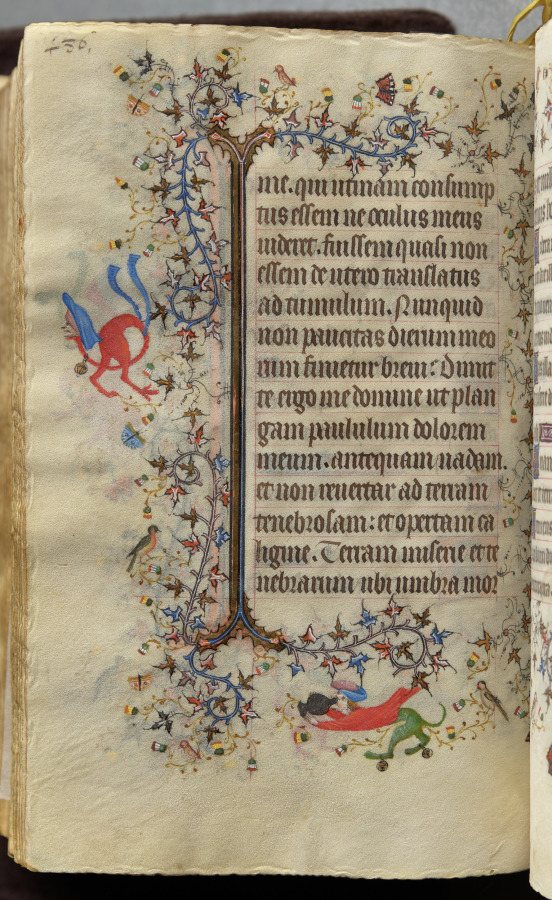 430.
me. qui utinam consump
tus essem ne oculus meus
uideret. fuissem quasi non
essem de utero translatus
ad tumulum. Nunquid
non paucitas dierum meo
rum finietur breui: Dimit
te ergo me domine ut plan
gam paululum dolorem
meum. antequam uadam.
et non reuertar ad terram
tenebrosam: et opertam ca
ligine. Terram miserie et te
nebrarum ubi umbra mor